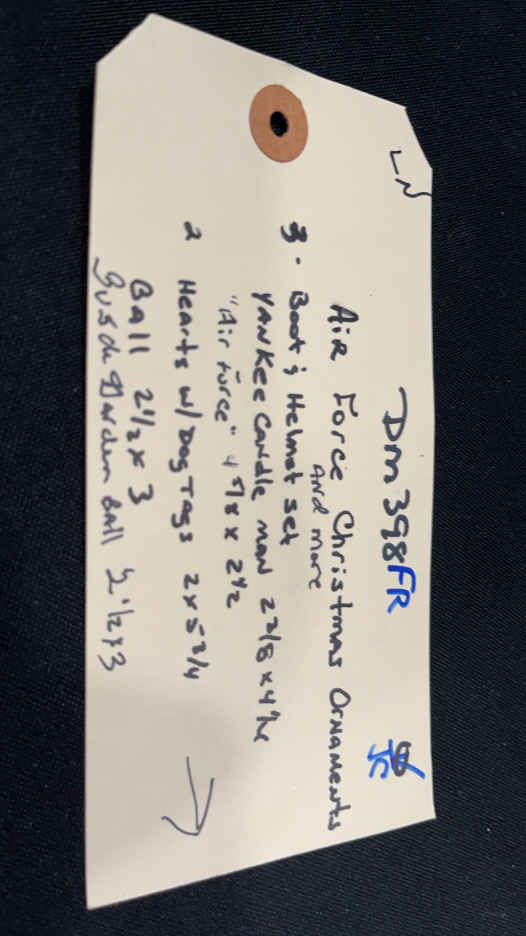 LN
DM398FR
JC
Air Force Christmas Ornaments
And more
3 - Boot & Helmet set
Yankee Candle man 2 2/8 x 4 1/2
"Air Force" 4 5/8 x 2 1/2
2 Hearts w/ Dog Tags 2 x 5 3/4
Ball 2 1/2 x 3
Garden Ball 2 1/2 x 3